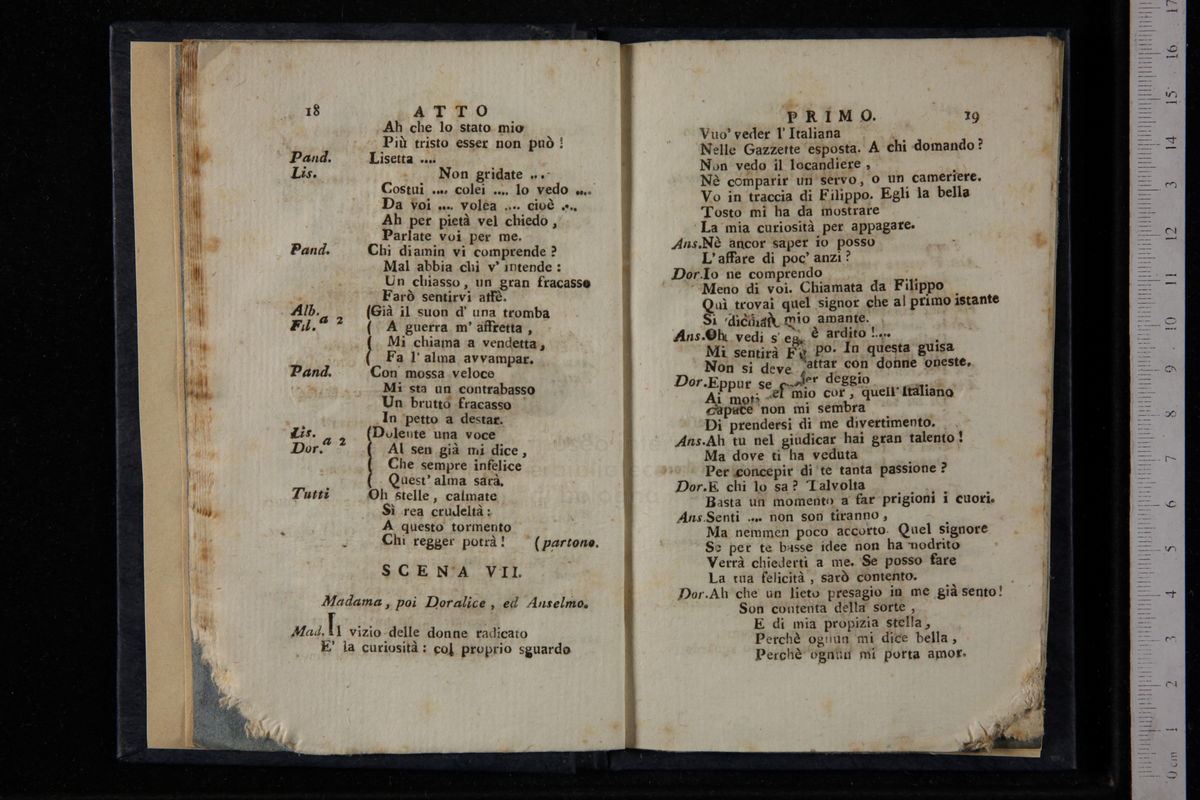 18 ATTO
Ah che lo stato mio
Più tristo esser non può !
Pand. Lisetta ....
Lis. Non gridate ...
Costui .... colei .... lo vedo ....
Da voi .... volea .... cioè ....
Ah per pietà vel chiedo ,
Parlate voi per me.
Pand. Chi diamin vi comprende ?
Mal abbia chi v' intende :
Un chiasso , un gran fracasso
Farò sentirvi affè.
Alb. (Già il suon d' una tromba
Fil. a 2 ( A guerra m' affretta ,
( Mi chiama a vendetta ,
( Fa l' alma avvampar.
Pand. Con mossa veloce
Mi sta un contrabasso
Un brutto fracasso
In petto a destar.
Lis. (Dolente una voce
Dor. a 2 ( Al sen già mi dice ,
( Che sempre infelice
( Quest' alma sarà.
Tutti Oh stelle , calmate
Sì rea crudeltà :
A questo tormento
Chi regger potrà ! (partono.
SCENA VII.
Madama , poi Doralice , ed Anselmo.
Mad. Il vizio delle donne radicato
E' la curiosità : col proprio sguardo
PRIMO. 19
Vuo' veder l' Italiana
Nelle Gazzette esposta. A chi domando ?
Non vedo il locandiere ,
Nè comparir un servo , o un cameriere.
Vo in traccia di Filippo. Egli la bella
Tosto mi ha da mostrare
La mia curiosità per appagare.
Ans. Nè ancor saper io posso
L' affare di poc' anzi ?
Dor. Io ne comprendo
Meno di voi. Chiamata da Filippo
Quì trovai quel signor che al primo istante
Si mio amante.
Ans. Oh vedi è ardito !....
Mi sentirà po. In questa guisa
Non si deve con donne oneste.
Dor. Eppur se deggio
Ai mio cor , quell' Italiano
Capace non mi sembra
Di prendersi di me divertimento.
Ans. Ah tu nel giudicar hai gran talento !
Ma dove ti ha veduta
Per concepir di te tanta passione ?
Dor. E chi lo sa ? Talvolta
Basta un momento a far prigioni i cuori.
Ans. Senti .... non son tiranno ,
Ma nemmen poco accorto. Quel signore
Se per te basse idee non ha nodrito
Verrà chiederti a me. Se posso fare
La tua felicità , sarò contento.
Dor. Ah che un lieto presagio in me già sento !
Son contenta della sorte ,
E di mia propizia stella ,
Perchè ognun mi dice bella ,
Perchè ognun mi porta amor.